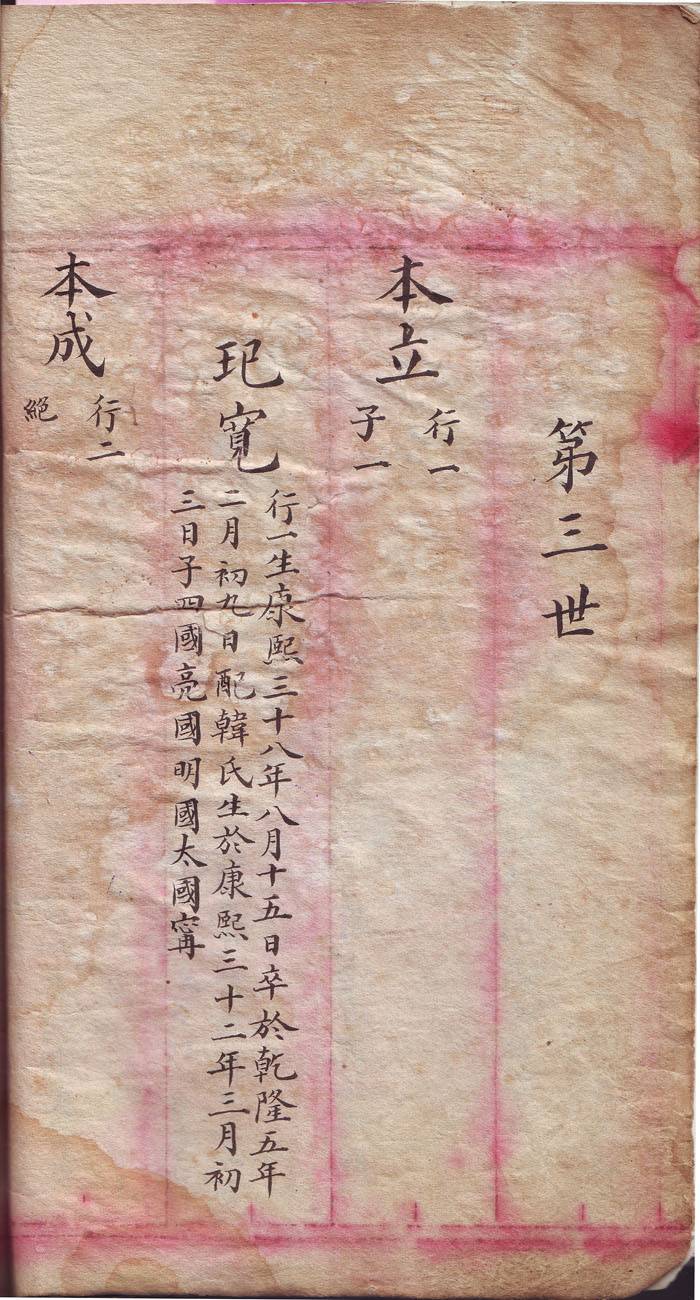 第三世
本立
行一
子一
玘寬
行一生康熙三十八年八月十五日卒於乾隆五年
二月初九日配韓氏生於康熙三十二年三月初
三日子四國亮國明國太國寗
本成
行二
絕